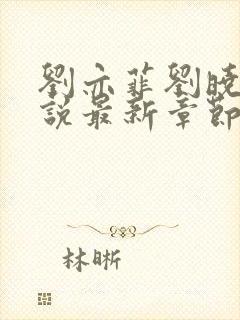 劉亦菲劉曉
說最新章節
林晰